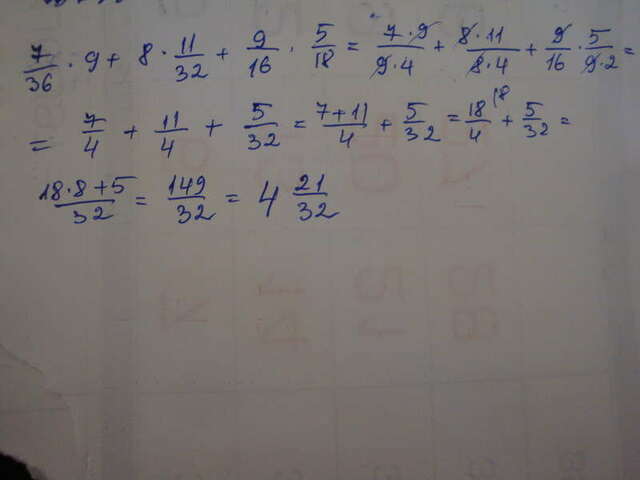 7/36 · 9 + 8 · 11/32 + 9/16 · 5/18 = 7·9/9·4 + 8·11/8·4 + 9/16 · 5/9·2 =
= 7/4 + 11/4 + 5/32 = 7+11/4 + 5/32 = 18/4 (8 + 5/32 =
18·8+5/32 = 149/32 = 4 21/32